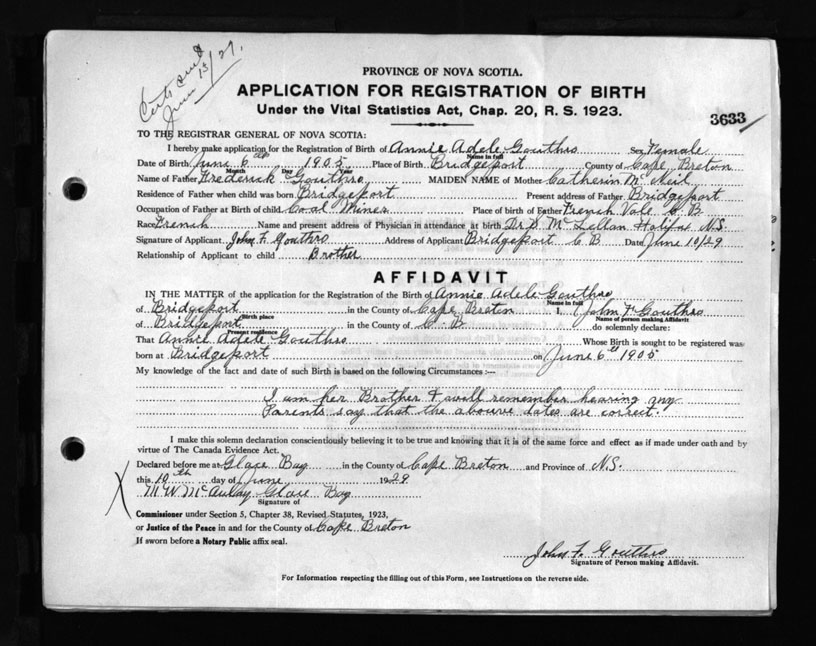 Certs sent
June 13/29.
PROVINCE OF NOVA SCOTIA.
APPLICATION FOR REGISTRATION OF BIRTH
Under the Vital Statistics Act, Chap. 20, R. S. 1923.
3633
TO THE REGISTRAR GENERAL OF NOVA SCOTIA:
I hereby make application for the Registration of Birth of Annie Adele Gouthro Sex Female
Name in full
Date of Birth June 6th 1905 Place of Birth Bridgeport County of Cape Breton
Month Day Year
Name of Father Frederick Gouthro MAIDEN NAME of Mother Catherin McNeil
Residence of Father when child was born Bridgeport Present address of Father Bridgeport
Occupation of Father at Birth of child Coal Miner Place of birth of Father French Vale C B
Race French Name and present address of Physician in attendance at birth Dr D McLellan Halifax N.S.
Signature of Applicant John F Gouthro Address of Applicant Bridgeport C B Date June 10/29
Relationship of Applicant to child Brother
AFFIDAVIT
IN THE MATTER of the application for the Registration of the Birth of Annie Adele Gouthro
Name in full
of Bridgeport in the County of Cape Breton I, John F Gouthro
Birth place Name of person making Affidavit
of Bridgeport in the County of C. B do solemnly declare:
Present residence
That Annie Adele Gouthro Whose Birth is sought to be registered was
born at Bridgeport on June 6th 1905
My knowledge of the fact and date of such Birth is based on the following Circumstances :—
I am her Brother & well remember hearing my
Parents say that the abouve dates are correct.
I make this solemn declaration conscientiously believing it to be true and knowing that it is of the same force and effect as if made under oath and by
virtue of The Canada Evidence Act.
Declared before me at Glace Bay in the County of Cape Breton and Province of N.S.
this 10th day of June 1929
X M W McAulay Glace Bay
Signature of
Commissioner under Section 5, Chapter 38, Revised Statutes, 1923,
or Justice of the Peace in and for the County of Cape Breton
If sworn before a Notary Public affix seal.
John F. Gouthro
Signature of Person making Affidavit.
For Information respecting the filling out of this Form, see Instructions on the reverse side.